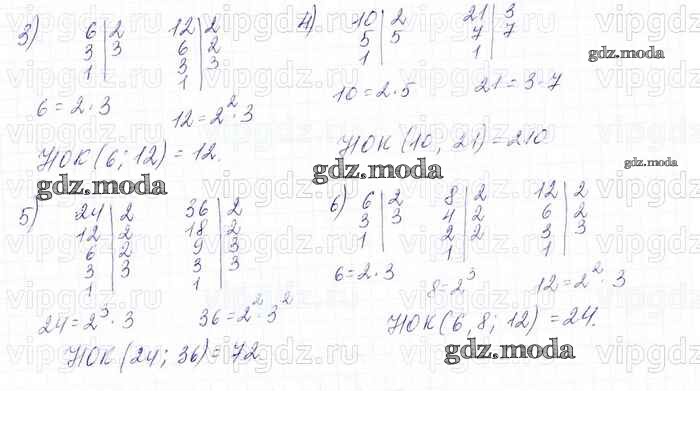 3) 6 | 2   12 | 2
3 | 3   6 | 2
1 |   3 | 3
1 |
6 = 2 · 3   12 = 2² · 3
НОК (6; 12) = 12.
4) 10 | 2   21 | 3
5 | 5   7 | 7
1 |   1 |
10 = 2 · 5   21 = 3 · 7
НОК (10, 21) = 210
5) 24 | 2   36 | 2
12 | 2   18 | 2
6 | 2   9 | 3
3 | 3   3 | 3
1 |   1 |
24 = 2³ · 3   36 = 2² · 3²
НОК (24; 36) = 72.
6) 6 | 2   8 | 2   12 | 2
3 | 3   4 | 2   6 | 2
1 |   2 | 2   3 | 3
1 |   1 |
6 = 2 · 3   8 = 2³   12 = 2² · 3
НОК (6, 8; 12) = 24.
gdz.moda
gdz.moda
gdz.moda
gdz.moda
gdz.moda
vipgdz.ru